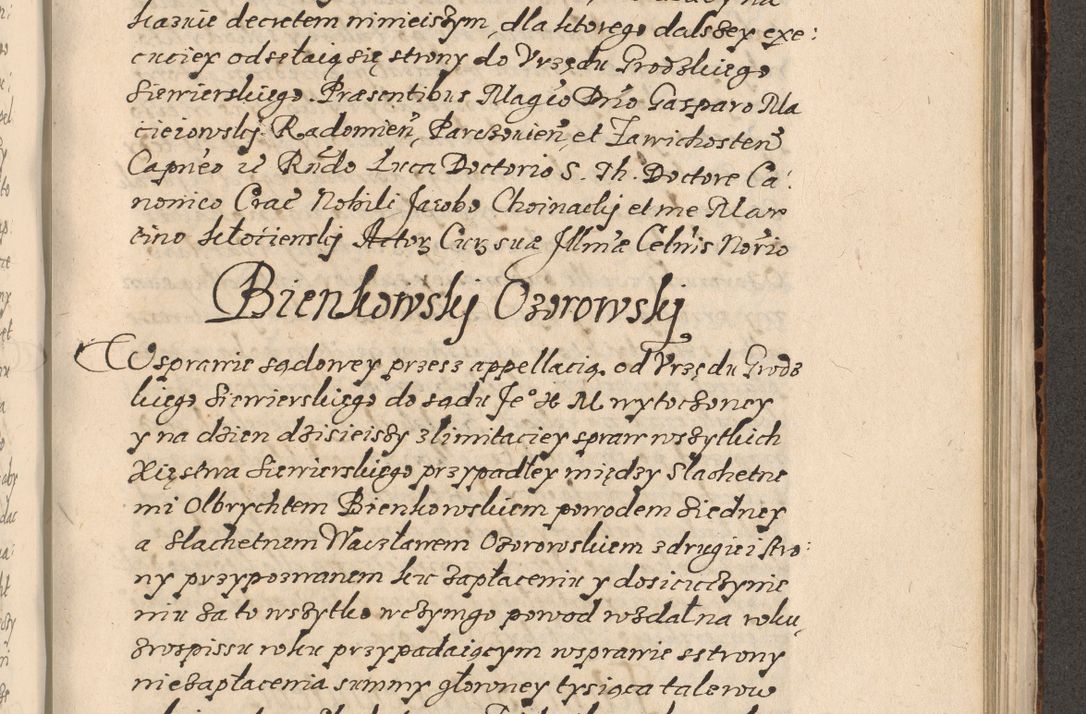 kaznie decretem ninieiszym, dla ktorego dalszey exe:
cuciey odsełaią się strony do Vrzędu Grodzkiego
Siewierskiego. Præsentibus Magco Dno Gasparo Ma
cieiowskij Radomien, Parczouien, et Zawichosten
Capneo et Rndo Luca Doctorio S. Th. Doctore Ca:
nonico Crac Nobili Jacobo Choinackij et me Mar
tino Kłocienskij Actor Cur suæ Illmæ Celnis Norio
Bienkowskij Ozorowskij
W sprawie sądowey przesz appellacią od Vrzędu Grodz
kiego Siewierskiego do sądu Je° X M. wytoczoney
y na dzien dzisieiszy z limitaciey spraw wszytkich
Xięstwa Siewierskiego przypadłey między Slachetne
mi Olbrychtem Bienkowskiem powodem ziedney
a Slachetnem Waczławem Ozorowskiem z drugiei stro:
ny przypozwanem ku zapłaceniu y dosicuczynie
niu za to wszytko wczymgo powod wzdał na roku
zwospissu roku przypadaiącym wsprawie sstrony
niezapłacenia summy głowney tysiąca talerow